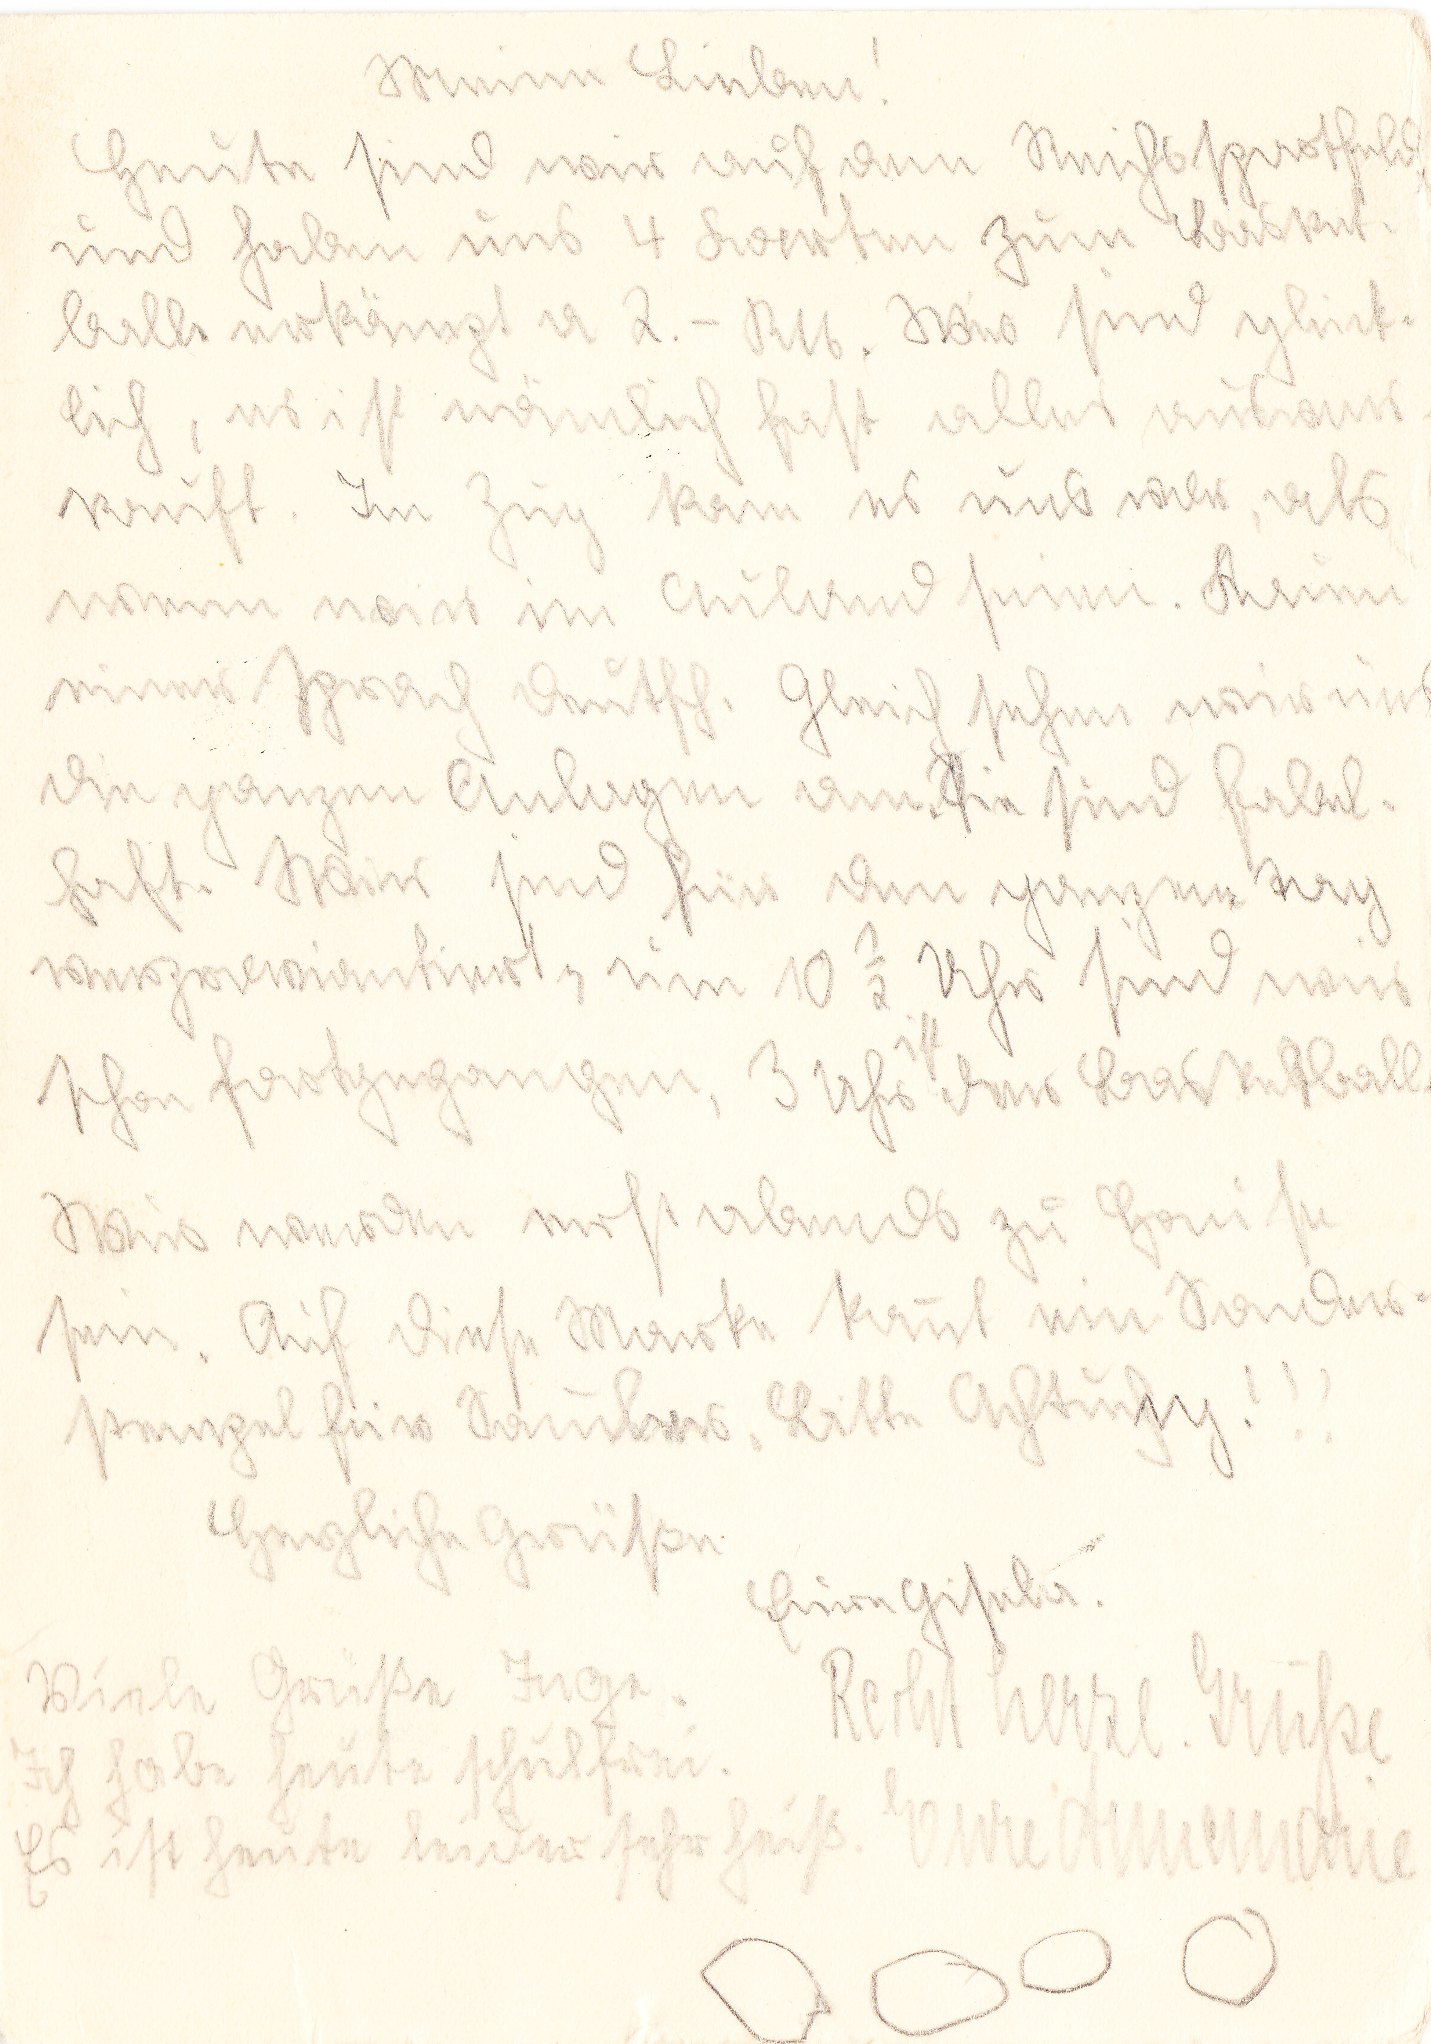 Meine Lieben!
Heute sind wir auf dem Reichssportfeld
und haben uns 4 Karten zum Basket-
ball erkämpt a 2.- RM. Wir sind glück-
lich, es ist nämlich fast alles ausver-
kauft. Im Zug kam es uns vor, als
wenn wir im Auland seien. Kaum
einer sprach deutsch. Gleich sehen wir uns
die ganzen Anlagen an. Sie sind fabel-
haft. Wir sind für den ganzen Tag
verproviantiert, um 10 1/2 Uhr sind wir
schon fortgegangen, 3 Uhr ist der Basketball.
Wir werden erst abends zu Hause
sein. Auf diese Marke kommt ein Sonder-
stempel für Sammler. Bitte Achtung!!!
Herzliche Grüsse
Eure Gisela.
Viele Grüße Inge.
Ich habe heute schulfrei.
Es ist heute leider sehr heiß.
Recht herzl. Grüsse
Eure Annemarie